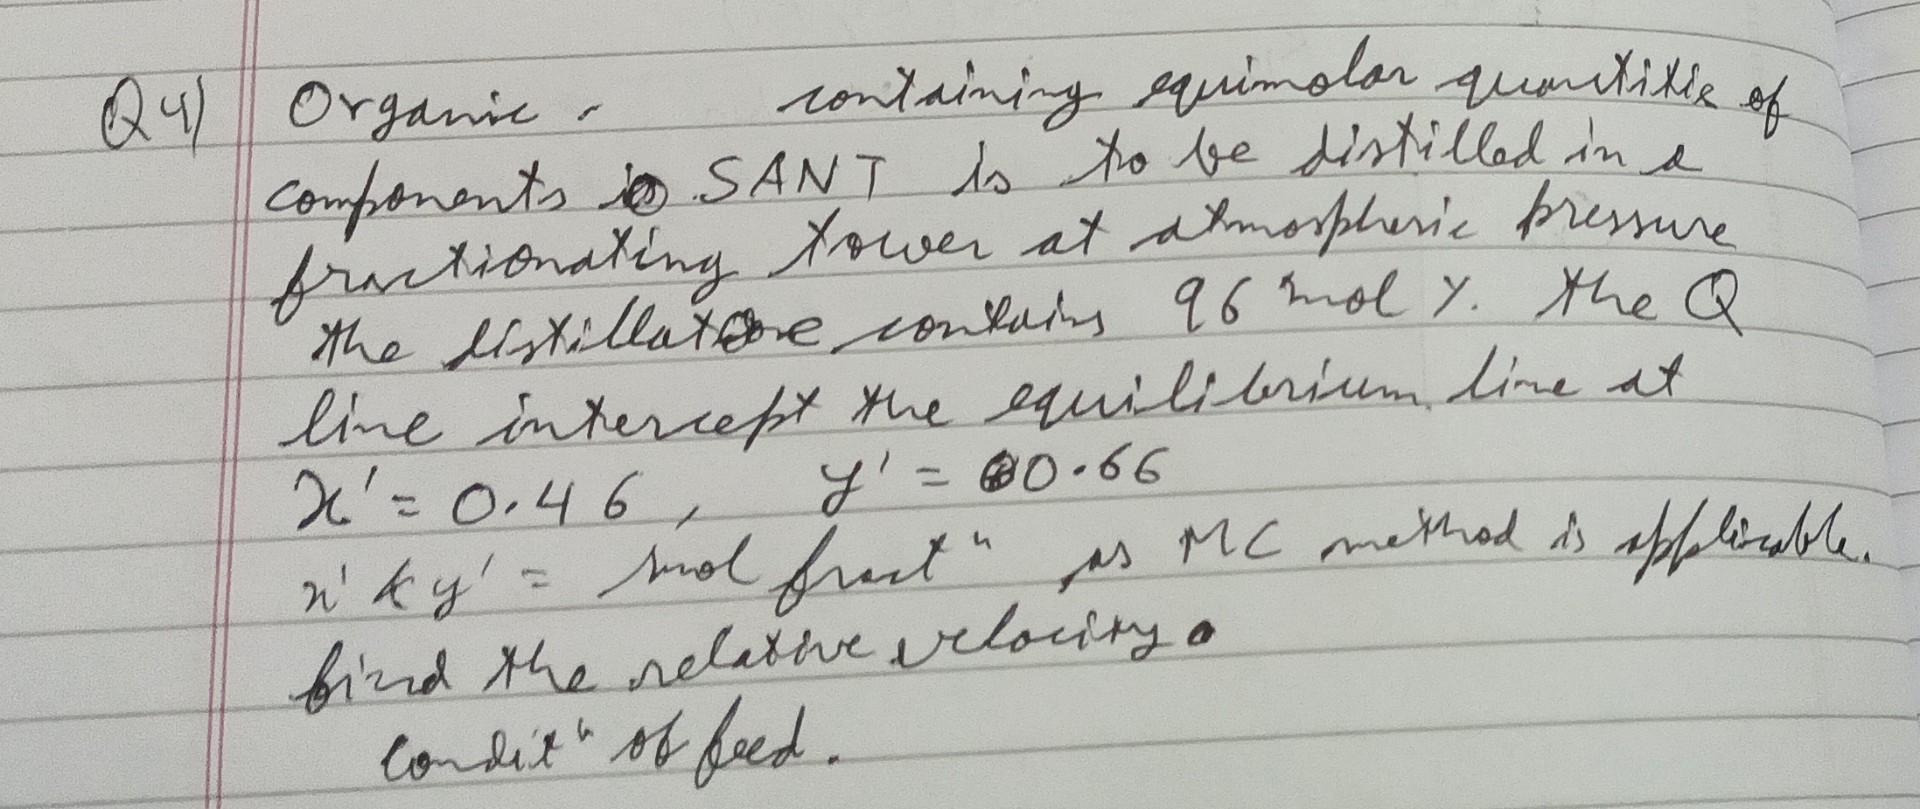 Q4) Organic. containing equimolar quantitie of
components SANT is to be distilled in a
fractionating tower at atmospheric pressure
the distillate contains 96 mol %. the Q
line intercept the equilibrium line at
x' = 0.46, y' = 0.66
x' & y' = mol fractⁿ as MC method is applicable.
find the relative velocity.
Conditⁿ of feed.